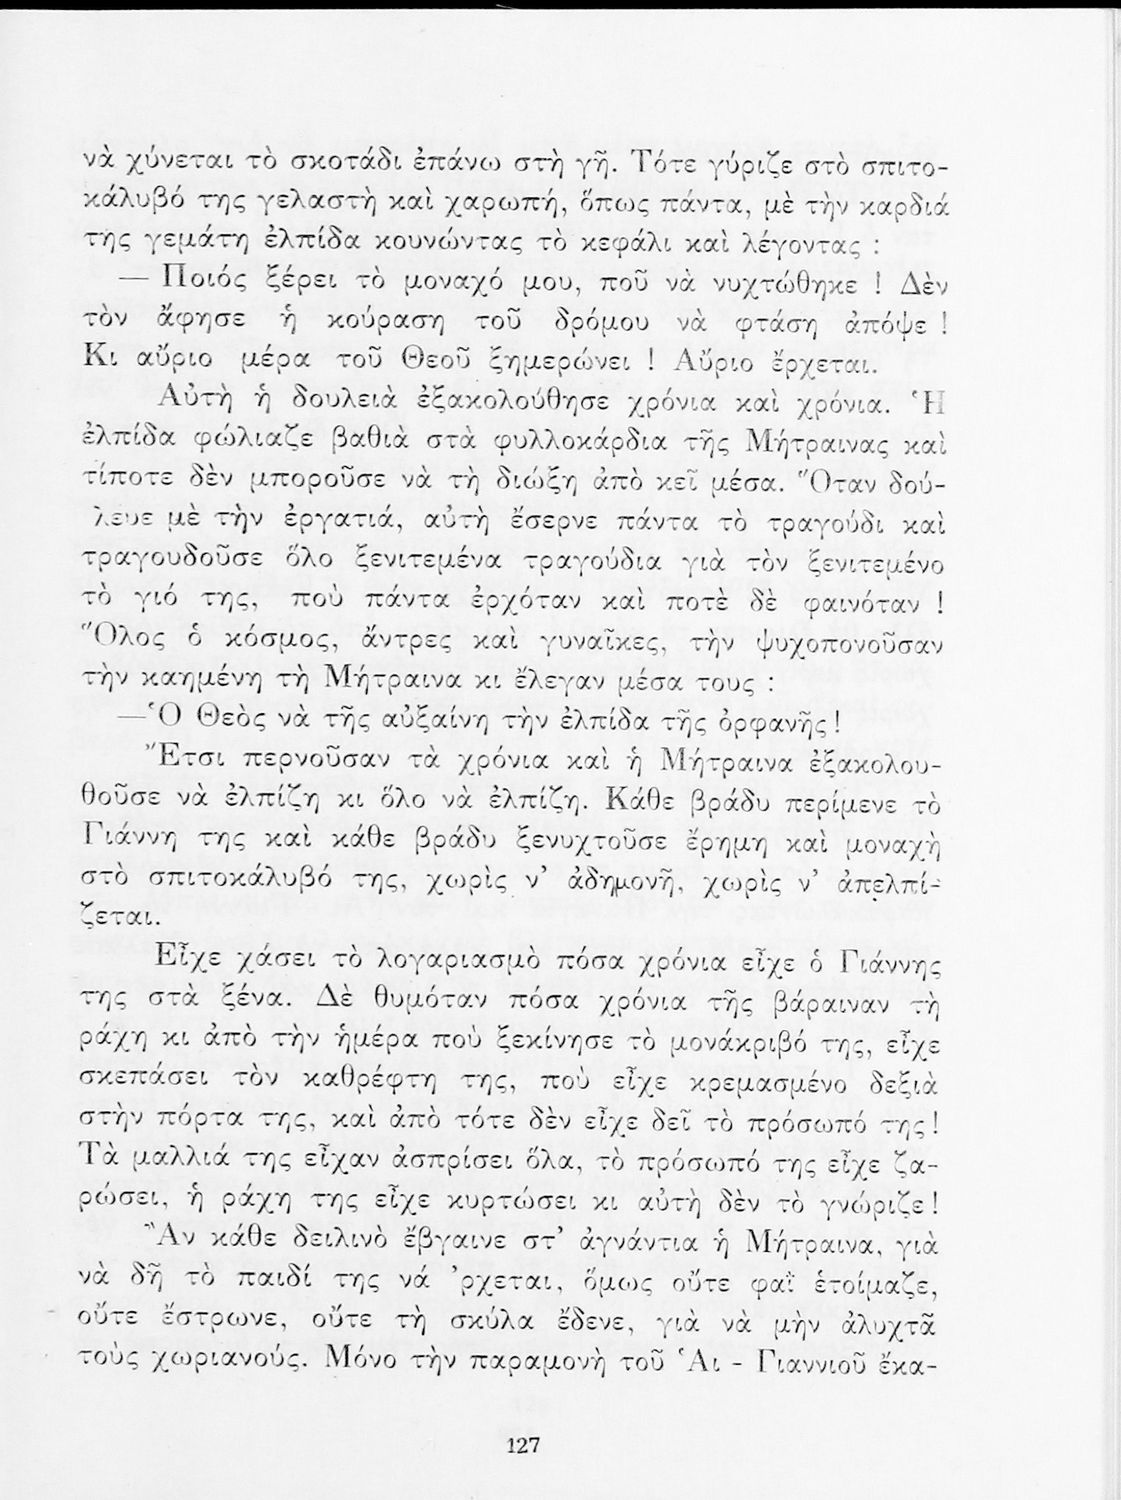 νὰ χύνεται τὸ σκοτάδι ἐπάνω στὴ γῆ. Τότε γύριζε στὸ σπιτο-
κάλυβό της γελαστὴ καὶ χαρωπή, ὅπως πάντα, μὲ τὴν καρδιά
της γεμάτη ἐλπίδα κουνώντας τὸ κεφάλι καὶ λέγοντας :
— Ποιός ξέρει τὸ μοναχό μου, ποῦ νὰ νυχτώθηκε ! Δὲν
τὸν ἄφησε ἡ κούραση τοῦ δρόμου νὰ φτάση ἀπόψε !
Κι αὔριο μέρα τοῦ Θεοῦ ξημερώνει ! Αὔριο ἔρχεται.
Αὐτὴ ἡ δουλειὰ ἐξακολούθησε χρόνια καὶ χρόνια. Ἡ
ἐλπίδα φώλιαζε βαθιὰ στὰ φυλλοκάρδια τῆς Μήτραινας καὶ
τίποτε δὲν μποροῦσε νὰ τὴ διώξη ἀπὸ κεῖ μέσα. Ὅταν δού-
λευε μὲ τὴν ἐργατιά, αὐτὴ ἔσερνε πάντα τὸ τραγούδι καὶ
τραγουδοῦσε ὅλο ξενιτεμένα τραγούδια γιὰ τὸν ξενιτεμένο
τὸ γιό της, ποὺ πάντα ἐρχόταν καὶ ποτὲ δὲ φαινόταν !
Ὅλος ὁ κόσμος, ἄντρες καὶ γυναῖκες, τὴν ψυχοπονοῦσαν
τὴν καημένη τὴ Μήτραινα κι ἔλεγαν μέσα τους :
—Ὁ Θεὸς νὰ τῆς αὐξαίνη τὴν ἐλπίδα τῆς ὀρφανῆς!
Ἔτσι περνοῦσαν τὰ χρόνια καὶ ἡ Μήτραινα ἐξακολου-
θοῦσε νὰ ἐλπίζη κι ὅλο νὰ ἐλπίζη. Κάθε βράδυ περίμενε τὸ
Γιάννη της καὶ κάθε βράδυ ξενυχτοῦσε ἔρημη καὶ μοναχὴ
στὸ σπιτοκάλυβό της, χωρὶς ν' ἀδημονῆ, χωρὶς ν' ἀπελπί-
ζεται.
Εἶχε χάσει τὸ λογαριασμὸ πόσα χρόνια εἶχε ὁ Γιάννης
της στὰ ξένα. Δὲ θυμόταν πόσα χρόνια τῆς βάραιναν τὴ
ράχη κι ἀπὸ τὴν ἡμέρα ποὺ ξεκίνησε τὸ μονάκριβό της, εἶχε
σκεπάσει τὸν καθρέφτη της, ποὺ εἶχε κρεμασμένο δεξιὰ
στὴν πόρτα της, καὶ ἀπὸ τότε δὲν εἶχε δεῖ τὸ πρόσωπό της!
Τὰ μαλλιά της εἶχαν ἀσπρίσει ὅλα, τὸ πρόσωπό της εἶχε ζα-
ρώσει, ἡ ράχη της εἶχε κυρτώσει κι αὐτὴ δὲν τὸ γνώριζε!
Ἂν κάθε δειλινὸ ἔβγαινε στ' ἀγνάντια ἡ Μήτραινα, γιὰ
νὰ δῆ τὸ παιδί της νά 'ρχεται, ὅμως οὔτε φαῒ ἑτοίμαζε,
οὔτε ἔστρωνε, οὔτε τὴ σκύλα ἔδενε, γιὰ νὰ μὴν ἀλυχτᾶ
τοὺς χωριανούς. Μόνο τὴν παραμονὴ τοῦ Ἁι - Γιαννιοῦ ἔκα-
127